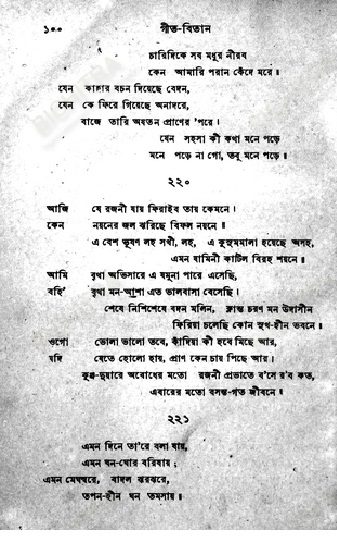 ১০০ গীত-বিতান
চারিদিকে সব মধুর নীরব
কেন আমারি পরান কেঁদে মরে।
যেন কাহার বচন দিয়েছে বেদন,
যেন কে ফিরে গিয়েছে অনাদরে,
বাজে তারি অযতন প্রাণের 'পরে।
যেন সহসা কী কথা মনে পড়ে
মনে পড়ে না গো, তবু মনে পড়ে॥
২২০
আজি যে রজনী যায় ফিরাইব তায় কেমনে।
কেন নয়নের জল ঝরিছে বিফল নয়নে।
এ বেশ ভূষণ লহ সখী, লহ, এ কুসুমমালা হয়েছে অসহ,
এমন যামিনী কাটিল বিরহ শয়নে।
আমি বৃথা অভিসারে এ যমুনা পারে এসেছি,
বহি' বৃথা মন-আশা এত ভালবাসা বেসেছি।
শেষে নিশিশেষে বদন মলিন, ক্লান্ত চরণ মন উদাসীন
ফিরিয়া চলেছি কোন সুখ-হীন ভবনে॥
ওগো ভোলা ভালো তবে, কাঁদিয়া কী হবে মিছে আর,
যদি যেতে হোলো হায়, প্রাণ কেন চায় পিছে আর।
কুঞ্জ-দুয়ারে অবোধের মতো রজনী প্রভাতে ব'সে র'ব কত,
এবারের মতো বসন্ত-গত জীবনে॥
২২১
এমন দিনে তা'রে বলা যায়,
এমন ঘন-ঘোর বরিষায়;
এমন মেঘস্বরে, বাদল ঝরঝরে,
তপন-হীন ঘন তমসায়॥